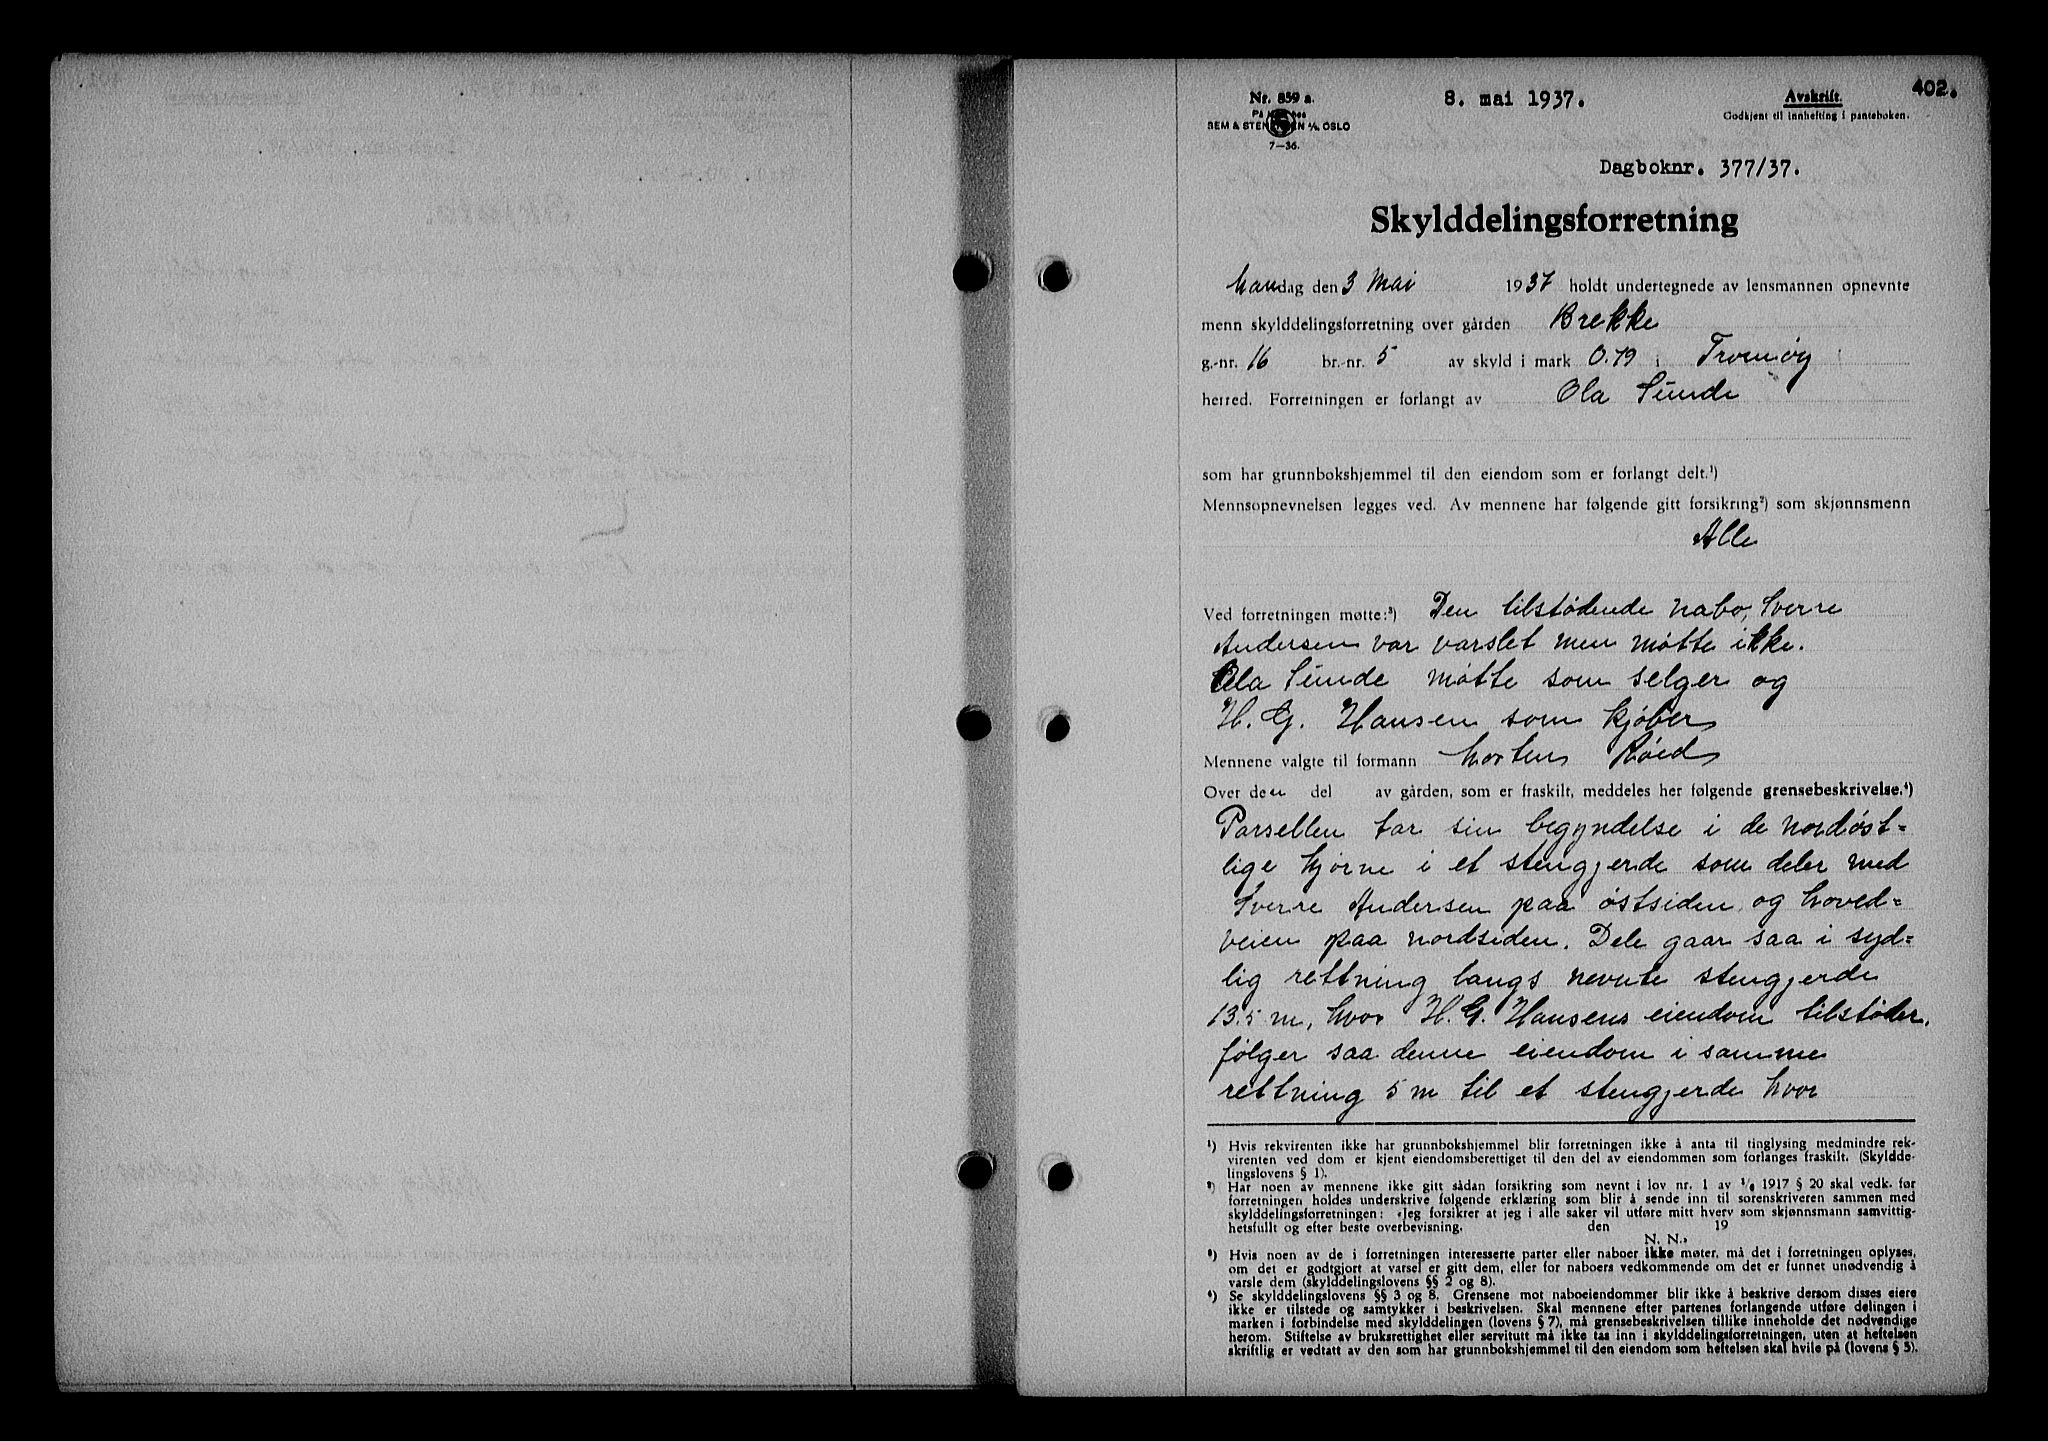 402.
Nr. 859 a.
8. mai 1937.
Avskrift.
Godkjent til innhefting i panteboken.
SEM & STENERSEN A/S OSLO
7—36.
Dagboknr. 377/37.
Skylddelingsforretning
Mandag den 3 Mai 1937 holdt undertegnede av lensmannen opnevnte
menn skylddelingsforretning over gården Brekke
g.-nr. 16 br.-nr. 5 av skyld i mark 0.79 i Tromøy
herred. Forretningen er forlangt av Ola Sunde
som har grunnbokshjemmel til den eiendom som er forlangt delt.¹)
Mennsopnevnelsen legges ved. Av mennene har følgende gitt forsikring²) som skjønnsmenn
Alle
Ved forretningen møtte:³) Den tilstødende nabo, Sverre
Andersen var varslet men møtte ikke.
Ola Sunde møtte som selger og
H. G. Hansen som kjøber
Mennene valgte til formann Morten Røed
Over den del av gården, som er fraskilt, meddeles her følgende grensebeskrivelse.⁴)
Parsellen tar sin begyndelse i de nordøst=
lige hjørne i et stengjerde som deler med
Sverre Andersen paa østsiden og hoved=
veien paa nordsiden. Dele gaar saa i syd=
lig rettning langs nevnte stengjerde
13.5 m, hvor H. G. Hansens eiendom tilstøder,
følger saa denne eiendom i samme
rettning 5 m til et stengjerde hvor
¹) Hvis rekvirenten ikke har grunnbokshjemmel blir forretningen ikke å anta til tinglysing medmindre rek-
virenten ved dom er kjent eiendomsberettiget til den del av eiendommen som forlanges fraskilt. (Skyldde-
lingslovens § 1).
²) Har noen av mennene ikke gitt sådan forsikring som nevnt i lov nr. 1 av 1/6 1917 § 20 skal vedk. før
forretningen holdes underskrive følgende erklæring som blir å sende inn til sorenskriveren sammen med
skylddelingsforretningen: „Jeg forsikrer at jeg i alle saker vil utføre mitt hverv som skjønnsmann samvittig-
hetsfullt og efter beste overbevisning. den 19
N. N.„
³) Hvis noen av de i forretningen interesserte parter eller naboer ikke møter, må det i forretningen oplyses,
om det er godtgjort at varsel er gitt dem, eller for naboers vedkommende om det er funnet unødvendig å
varsle dem (skylddelingslovens §§ 2 og 8).
⁴) Se skylddelingslovens §§ 3 og 8. Grensene mot naboeiendommer blir ikke å beskrive dersom disses eiere
ikke er tilstede og samtykker i beskrivelsen. Skal mennene efter partenes forlangende utføre delingen i
marken i forbindelse med skylddelingen (lovens § 7), må grensebeskrivelsen tillike inneholde det nødvendige
herom. Stiftelse av bruksrettighet eller servitutt må ikke tas inn i skylddelingsforretningen, uten at heftelsen
skriftlig er vedtatt av den som har grunnbokshjemmel til den eiendom som heftelsen skal hvile på (lovens § 5).